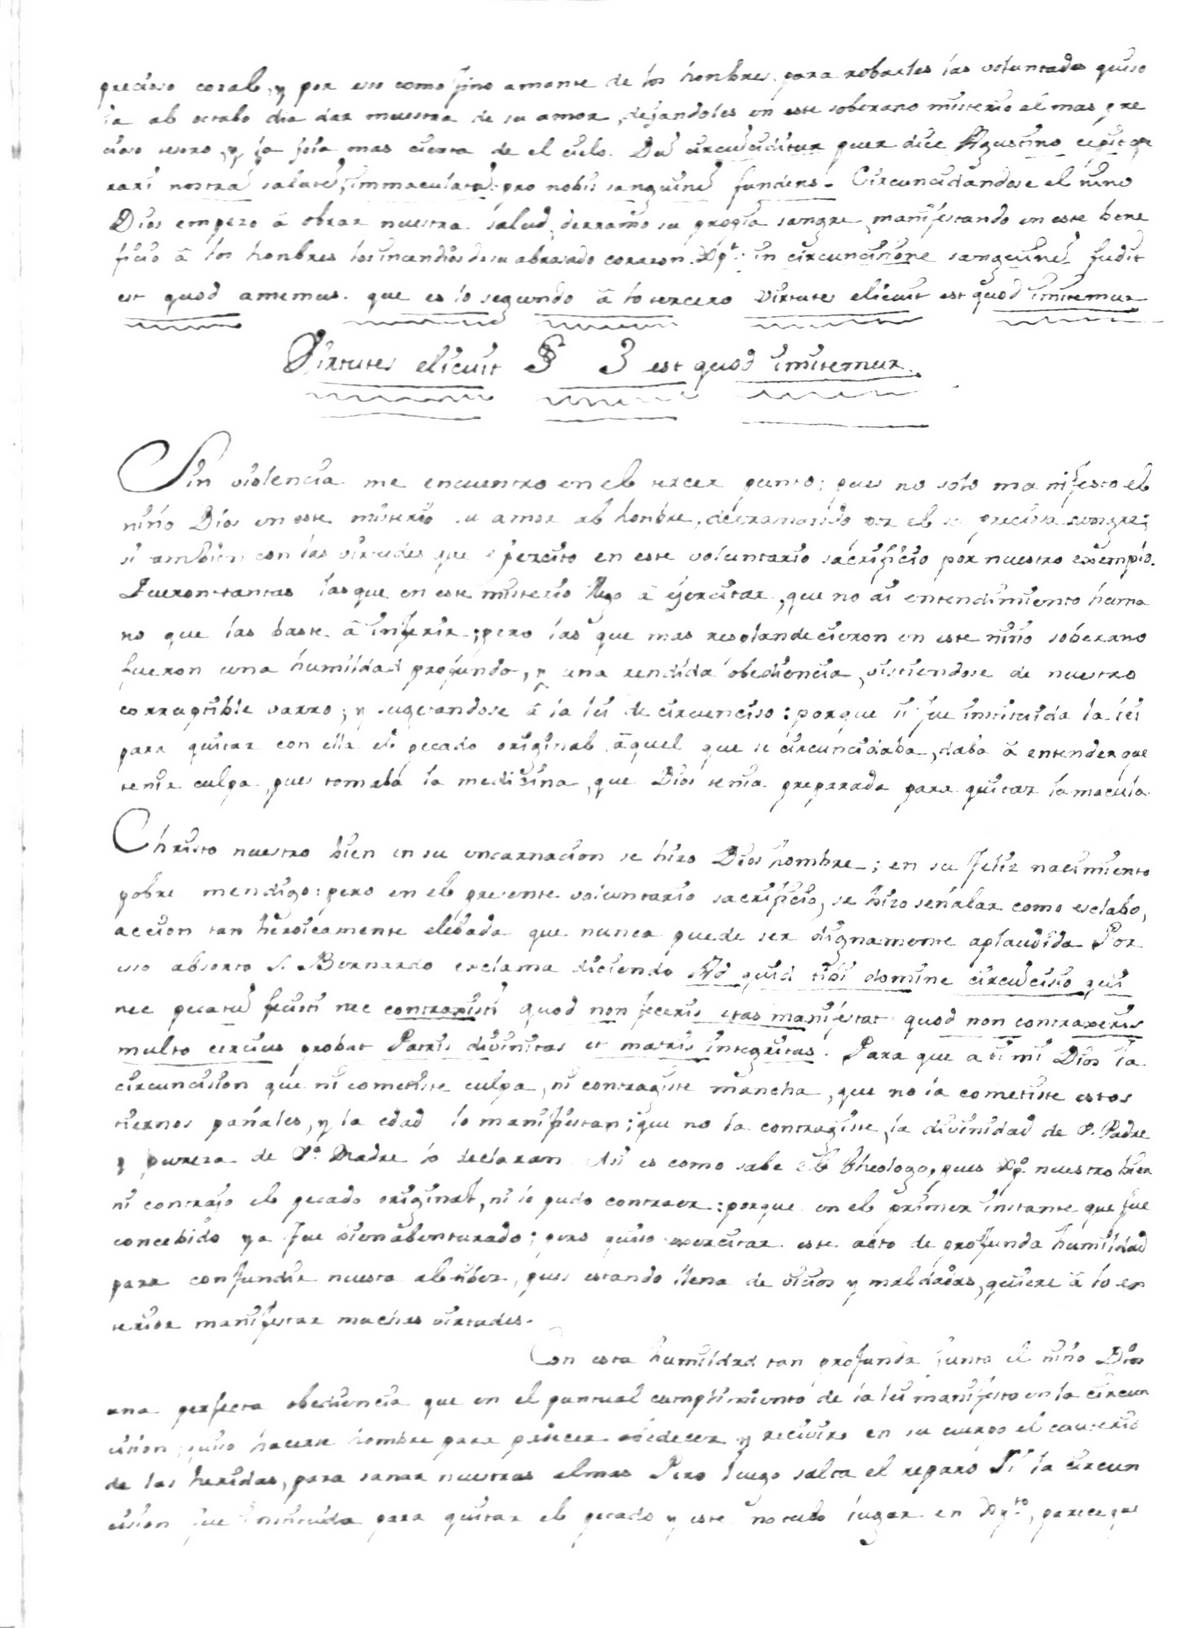 precioso coral, y por eso como fino amante de los honbres, para robarles las voluntades quiso
ia al octabo dia dar muestra de su amor, dejandoles en este soberano misterio el mas pre
cioso tesoro, y la joia mas cierta de el cielo. Dũ circũciditur puer dice Agustino cepit ope
rari nostrã salutẽ, immaculatũ pro nobis sanguinẽ fundens. Circuncidandose el niño
Dios empezo â obrar nuestra salud, derramo su propia sangre, manifestando en este bene
ficio â los honbres los incendios de su abrasado corazon. Xpt: in circuncisione sanguinẽ fudit
est quod amemus. que es lo segundo â lo tercero virtutes elicuit est quod imitemur
Virtutes elicuit § 3 est quod imitemur.
Sin violencia me encuentro en el tercer punto; pues no solo manifesto el
niño Dios en este misterio su amor al honbre, derramando por el su preciosa sangre;
si tambien con las virtudes que ejercito en este voluntario sacrificio por nuestro exemplo.
Fueron tantas las que en este misterio llego â ejercitar, que no ai entendimiento huma
no que las baste â inferir; pero las que mas resplandecieron en este niño soberano
fueron una humildad profunda, y una rendida obediencia, vistiendose de nuestro
corruptible varro; y sugetandose â la lei de circunciso: porque si fue instituida la lei
para quitar con ella el pecado original âquel que se circuncidaba, daba â entender que
tenia culpa, pues tomaba la medizina, que Dios tenia preparada para quitar la macula.
Christo nuestro bien en su encarnacion se hizo Dios hombre; en su feliz nacimiento
pobre mendigo: pero en el presente voluntario sacrificio, se hizo señalar como esclabo,
accion tan heroicamente elebada que nunca puede ser dignamente aplaudida Por
eso absorto S. Bernardo esclama diciendo Ad quid tibi domine circũcisio qui
nec pecatũ fecisti nec contraxisti quod non feceris etas manifestat quod non contraxeris
multo cercius probat Patris divinitas et matris integritas. Para que a ti mi Dios la
circuncision que ni cometiste culpa, ni contragiste mancha, que no la cometiste estos
tiernos pañales, y la edad lo manifiestan; que no la contragiste, la divinidad de S. Padre
y pureza de Sa. Madre lo declaran Asi es como sabe el Theologo, pues Xpt. nuestro bien
ni contrajo el pecado original, ni lo pudo contraer: porque en el primer instante que fue
concebido ya fue bienabenturado; pero quiso exercitar este acto de profunda humildad
para confundir nuesta altibez, pues estando llena de vicios y maldades, quiere â lo en
terior manifestar muchas virtudes.
Con esta humildad tan profunda junta el niño Dios
una perfecta obediencia que en el puntual cumplimiento de la lei manifesto en la circun
cision; quiso hacerse hombre para padecer obedecer y recivire en su cuerpo el cauterio
de las heridas, para sanar nuestras almas Pero luego salta el reparo Si la circun
cision fue instituida para quitar el pecado y este no tubo lugar en Xpto, parece que